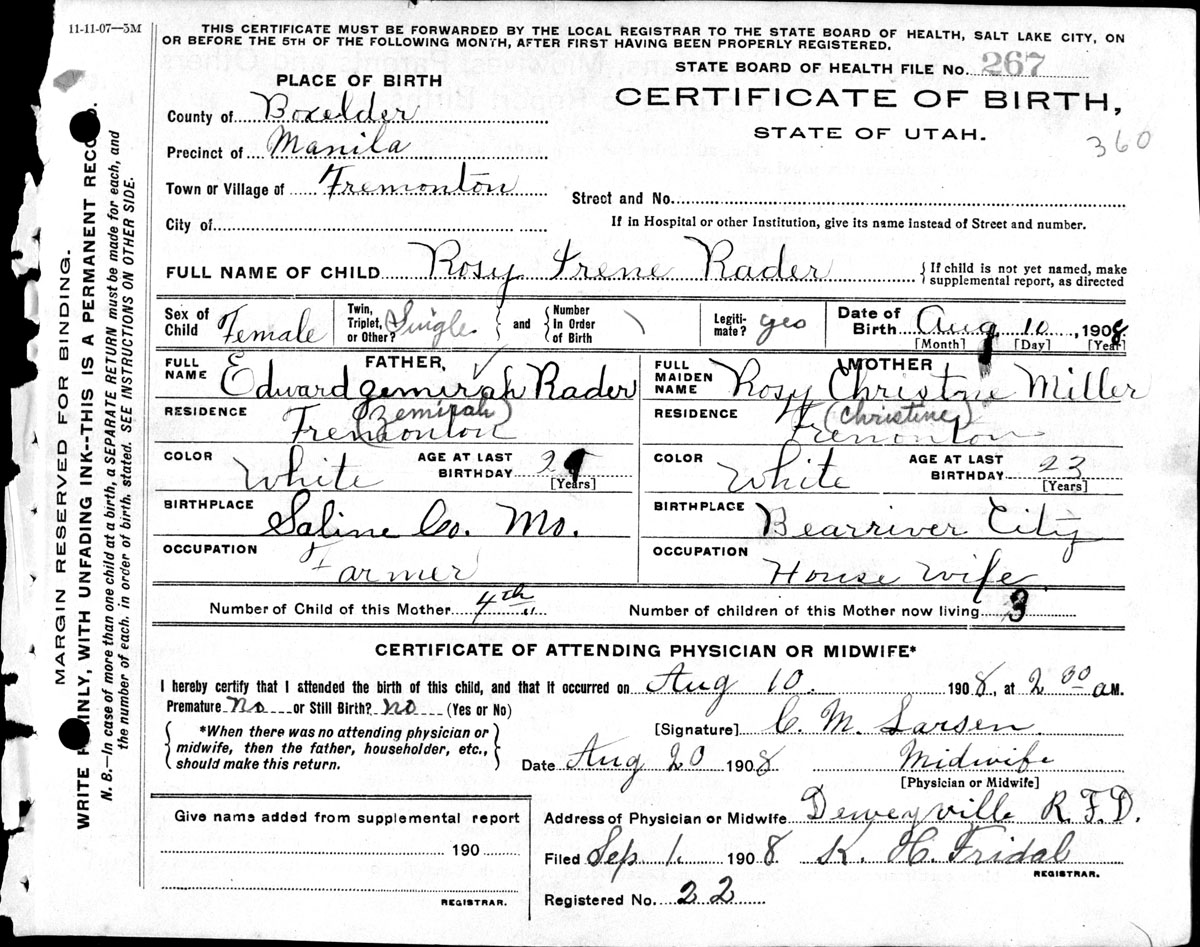 11-11-07—5M
THIS CERTIFICATE MUST BE FORWARDED BY THE LOCAL REGISTRAR TO THE STATE BOARD OF HEALTH, SALT LAKE CITY, ON
OR BEFORE THE 5TH OF THE FOLLOWING MONTH, AFTER FIRST HAVING BEEN PROPERLY REGISTERED.
STATE BOARD OF HEALTH FILE No. 267
PLACE OF BIRTH
CERTIFICATE OF BIRTH,
STATE OF UTAH.
360
County of Boxelder
Precinct of Manila
Town or Village of Tremonton
Street and No.
City of
If in Hospital or other Institution, give its name instead of Street and number.
FULL NAME OF CHILD Rosy Irene Rader
{If child is not yet named, make
supplemental report, as directed
Sex of Child Female
Twin, Triplet, or Other? Single
and
Number In Order of Birth
Legiti-mate? yes
Date of Birth Aug 10, 1908
[Month] [Day] [Year]
FATHER,
FULL NAME Edward Zemirah Rader
(Zemirah)
RESIDENCE Tremonton
COLOR White
AGE AT LAST BIRTHDAY
[Years]
BIRTHPLACE Saline Co. Mo.
OCCUPATION Farmer
MOTHER
FULL MAIDEN NAME Rosy Christne Miller
(Christine)
RESIDENCE Tremonton
COLOR White
AGE AT LAST BIRTHDAY 23
[Years]
BIRTHPLACE Bearriver City
OCCUPATION House wife
Number of Child of this Mother 4th
Number of children of this Mother now living 3
CERTIFICATE OF ATTENDING PHYSICIAN OR MIDWIFE*
I hereby certify that I attended the birth of this child, and that it occurred on Aug 10. 1908, at 2 00 a M.
Premature No or Still Birth? No (Yes or No)
*When there was no attending physician or
midwife, then the father, householder, etc.,
should make this return.
[Signature] C. M. Larsen
Date Aug 20 1908
Midwife
[Physician or Midwife]
Give name added from supplemental report
190
REGISTRAR.
Address of Physician or Midwife Deweyville R.F.D.
Filed Sep 1. 1908. K. H. Fridal
REGISTRAR.
Registered No. 22
MARGIN RESERVED FOR BINDING.
WRITE PLAINLY, WITH UNFADING INK--THIS IS A PERMANENT RECORD.
N. B.—In case of more than one child at a birth, a SEPARATE RETURN must be made for each, and
the number of each, in order of birth, stated. SEE INSTRUCTIONS ON OTHER SIDE.